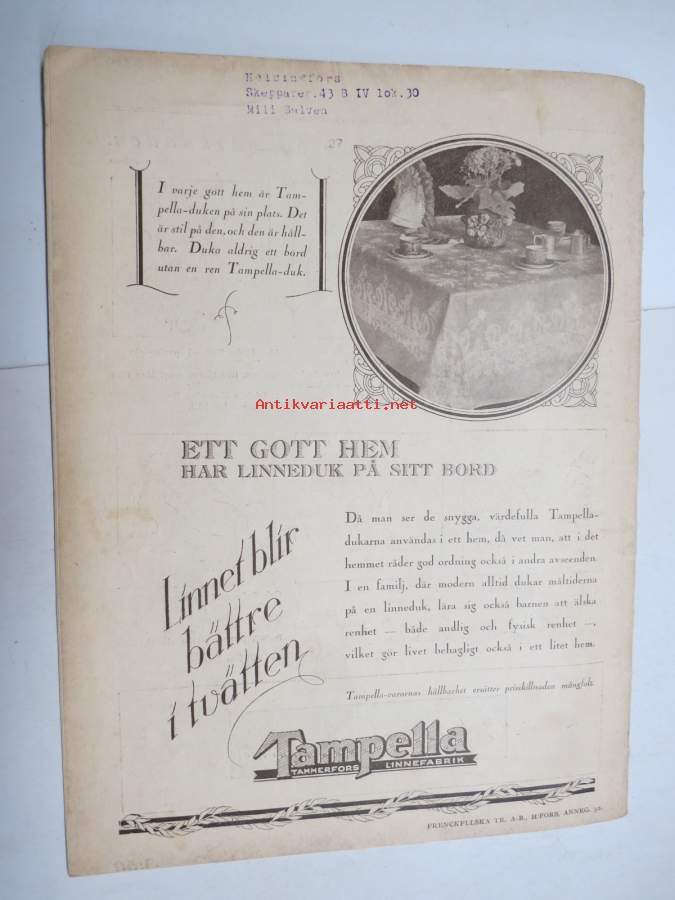 Helsingfors
Skepparer.43 B IV lok.30
Mili Salven
27
I varje gott hem är Tam-
pella-duken på sin plats. Det
är stil på den, och den är håll-
bar. Duka aldrig ett bord
utan en ren Tampella-duk.
Antikvariaatti.net
ETT GOTT HEM
HAR LINNEDUK PÅ SITT BORD
Linnet blir
bättre
i tvätten
Då man ser de snygga, värdefulla Tampella-
dukarna användas i ett hem, då vet man, att i det
hemmet råder god ordning också i andra avseenden.
I en familj, där modern alltid dukar måltiderna
på en linneduk, lära sig också barnen att älska
renhet — både andlig och fysisk renhet —,
vilket gör livet behagligt också i ett litet hem.
Tampella-varornas hållbarhet ersätter prisskillnaden mångfalt.
Tampella
TAMMERFORS LINNEFABRIK
FRENCKELLSKA TR. A-B., H:FORS, ANNEG. 32.